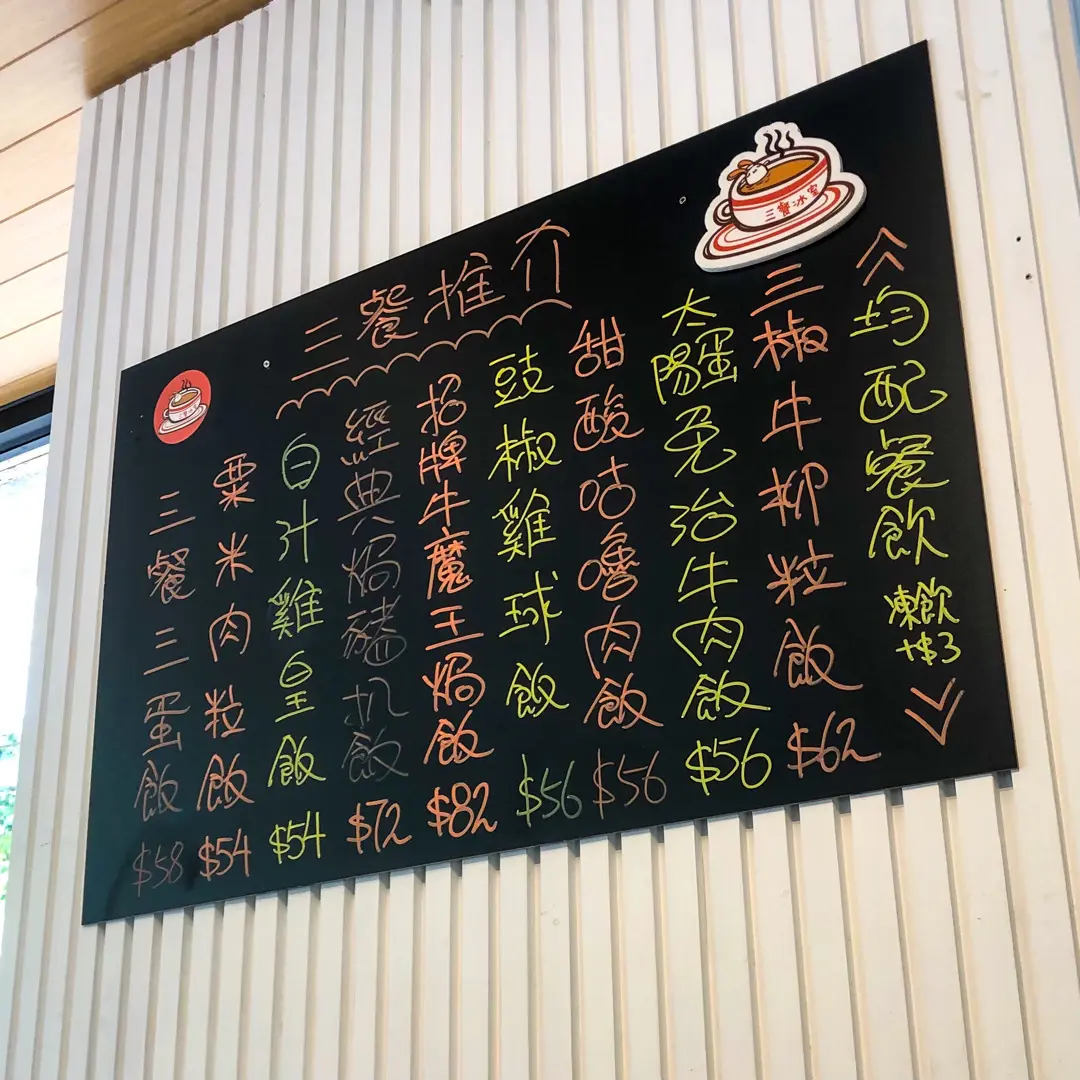 三餐推介
三餐冰室
均配餐飲
凍飲
+$3
三椒牛柳粒飯 $62
太陽蛋免治牛肉飯 $56
甜酸咕嚕肉飯 $56
豉椒雞球飯 $56
招牌牛魔王焗飯 $82
經典焗豬扒飯 $72
白汁雞皇飯 $54
粟米肉粒飯 $54
三餐三蛋飯 $58